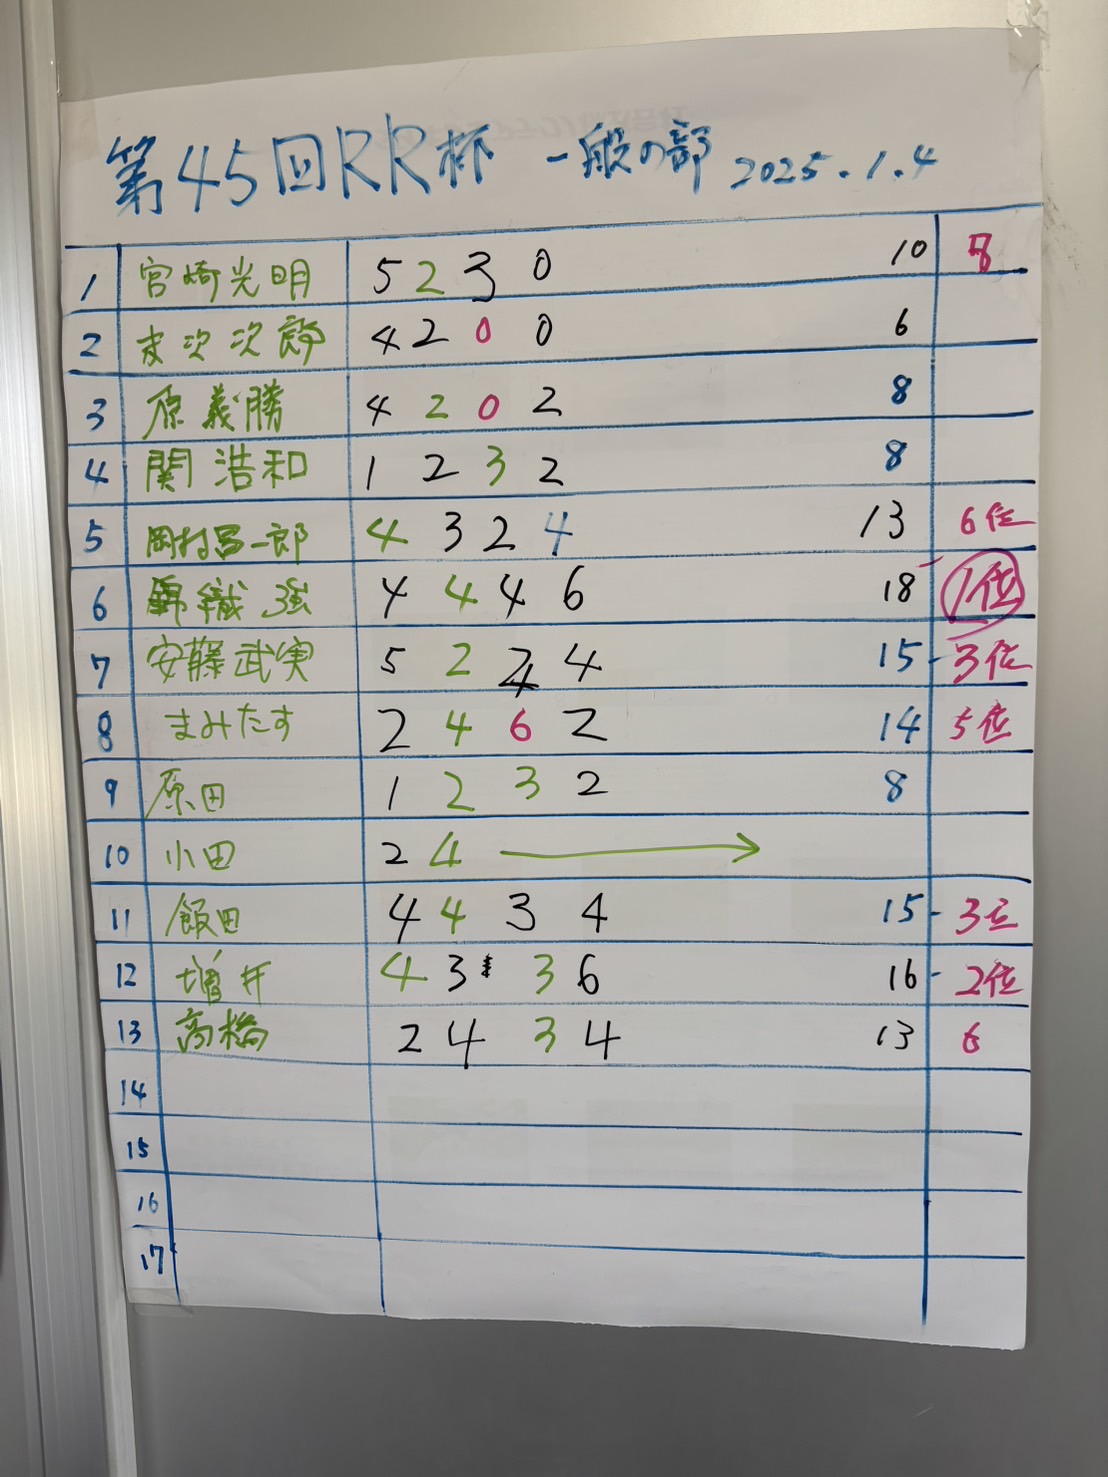 第45回RR杯 一般の部 2025.1.4
1 宮崎光明 5 2 3 0 10 8
2 末次次郎 4 2 0 0 6
3 原義勝 4 2 0 2 8
4 関浩和 1 2 3 2 8
5 岡村昌一郎 4 3 2 4 13 6位
6 錦織強 4 4 4 6 18 1位
7 安藤武実 5 2 4 4 15 - 3位
8 まみたす 2 4 6 2 14 5位
9 原田 1 2 3 2 8
10 小田 2 4 →
11 飯田 4 4 3 4 15 - 3位
12 増井 4 3 3 6 16 - 2位
13 高橋 2 4 3 4 13 6
14
15
16
17